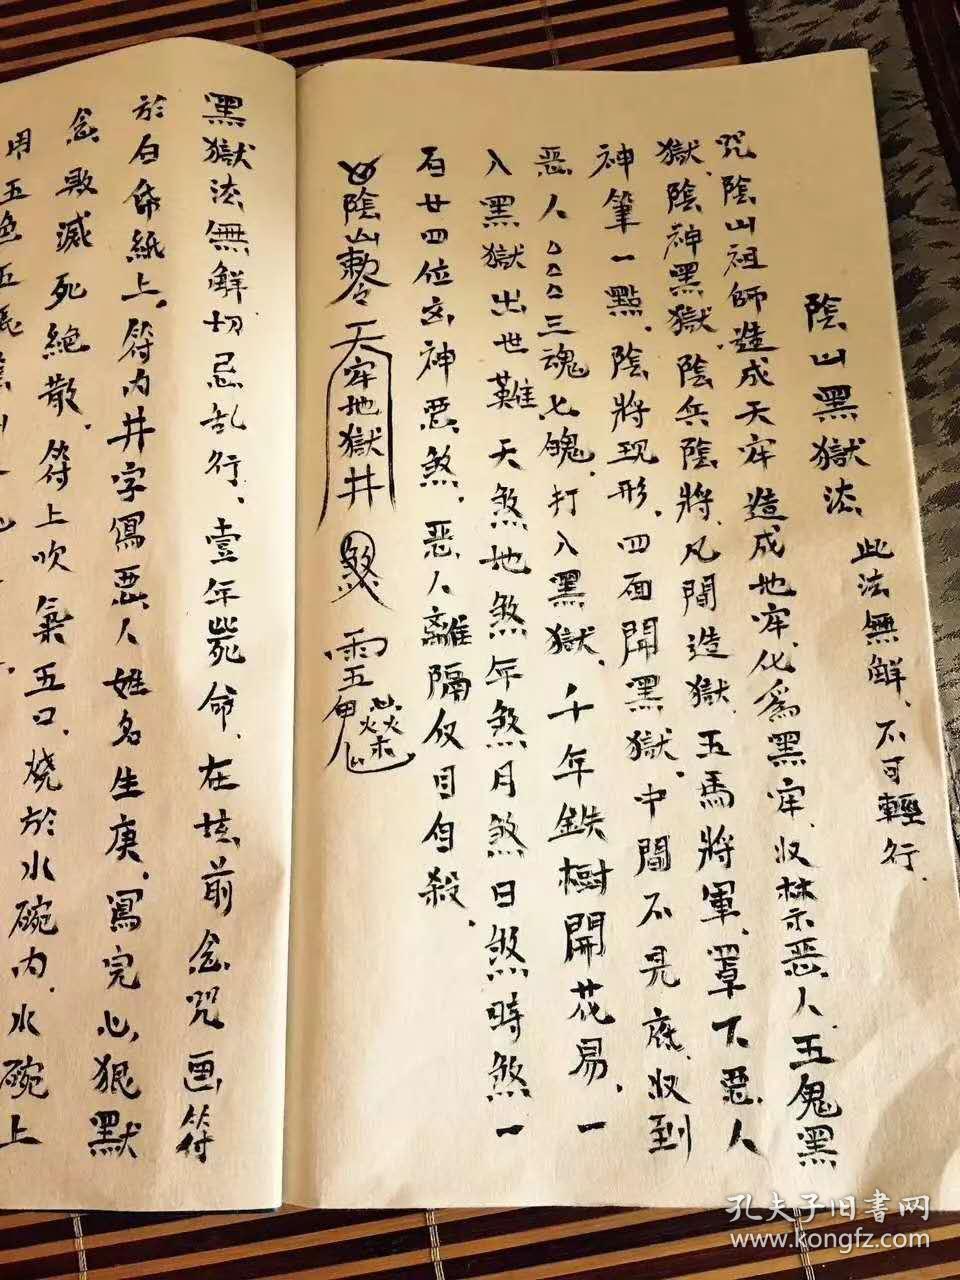 陰山黑獄法
此法無觧、不可輕行.
咒陰山祖師造成天牢造成地牢、化爲黑牢、収禁惡人、五鬼黑
獄、陰神黑獄、陰兵陰將、凡間造獄、五馬將軍、罩下惡人
神筆一點、陰將現形、四面開黑獄、中間不見底、収到
惡人△△△三魂七魄、打入黑獄、千年鉄樹開花易、一
入黑獄出世難、天煞地煞年煞月煞日煞時煞一
百廿四位凶神惡煞、惡人離隔仅目自殺.
陰山勅令天牢地獄井煞
黑獄法無觧切忌乱行、壹年毙命、在坛前念咒画符
於白帋紙上、符内井字寫惡人姓名生庚、寫完心狠默
念敗滅死絕散、符上吹氣五口、燒於水碗内、水碗上
用五色五
孔夫子旧書网
www.kongfz.com